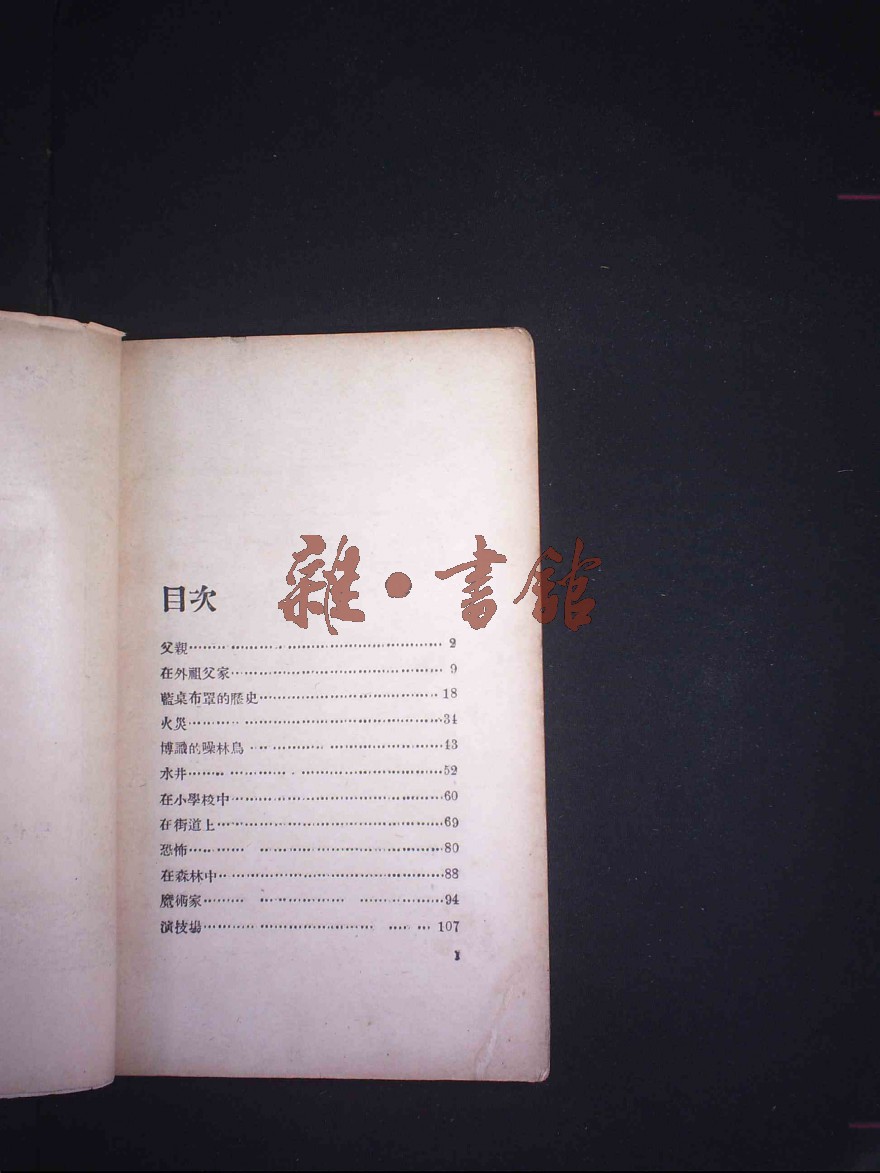 雜·書館
目次
父親……………………………………2
在外祖父家……………………………9
藍桌布罩的歷史………………………18
火災……………………………………34
博識的噪林鳥…………………………43
水井……………………………………52
在小學校中……………………………60
在街道上………………………………69
恐怖……………………………………80
在森林中………………………………88
魔術家…………………………………94
演技場…………………………………107
I